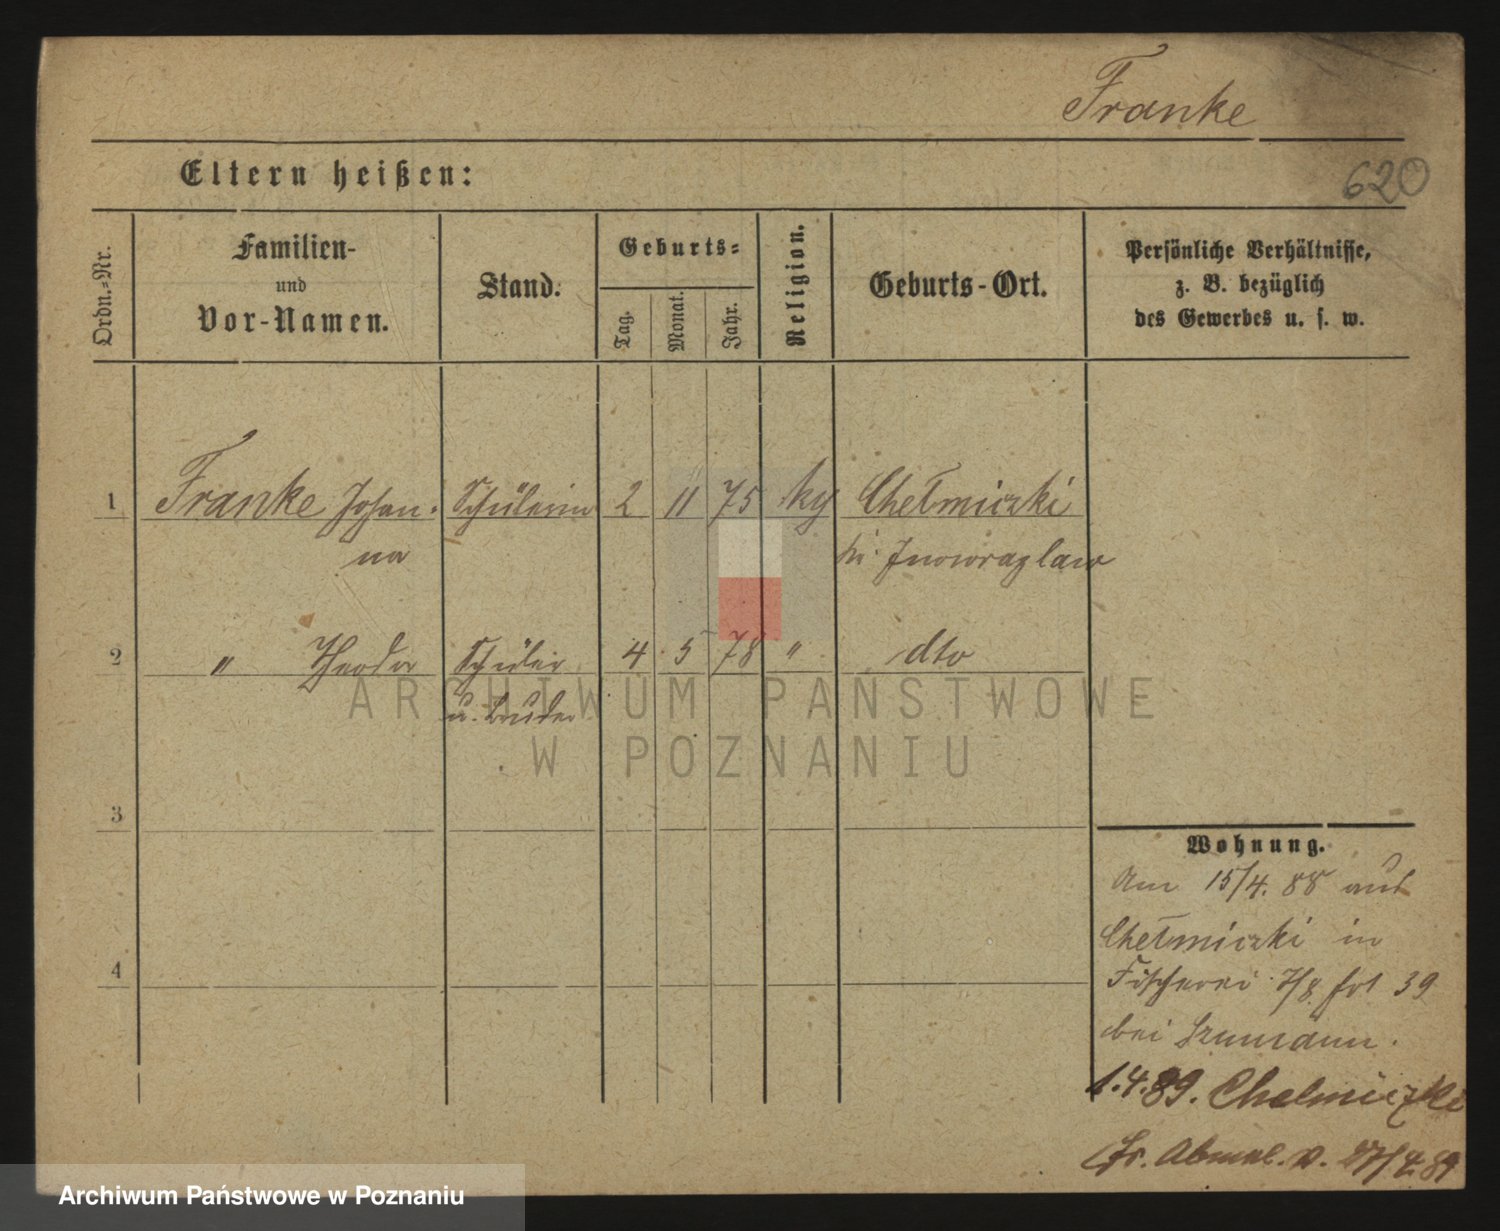 Franke
620
Eltern heißen:
Ordn.-Nr.
Familien-
und
Vor-Namen.
Stand.
Geburts-
Tag.
Monat.
Jahr.
Religion.
Geburts-Ort.
Persönliche Verhältnisse,
z. B. bezüglich
des Gewerbes u. s. w.
1 Franke Johan- Schülerin 2 11 75 Chełmiczki
na Inowrazlaw
2 " Theodor Schüler 4 5 78 " dto
u. Bruder
3
4
Wohnung.
Am 15/4. 88 aus
Chełmiczki in
Fischerei 7/8 39
bei Szumann.
1.4.89. Chelmiczki
Abmel. v. 27/4 89
ARCHIWUM PAŃSTWOWE
W POZNANIU
Archiwum Państwowe w Poznaniu